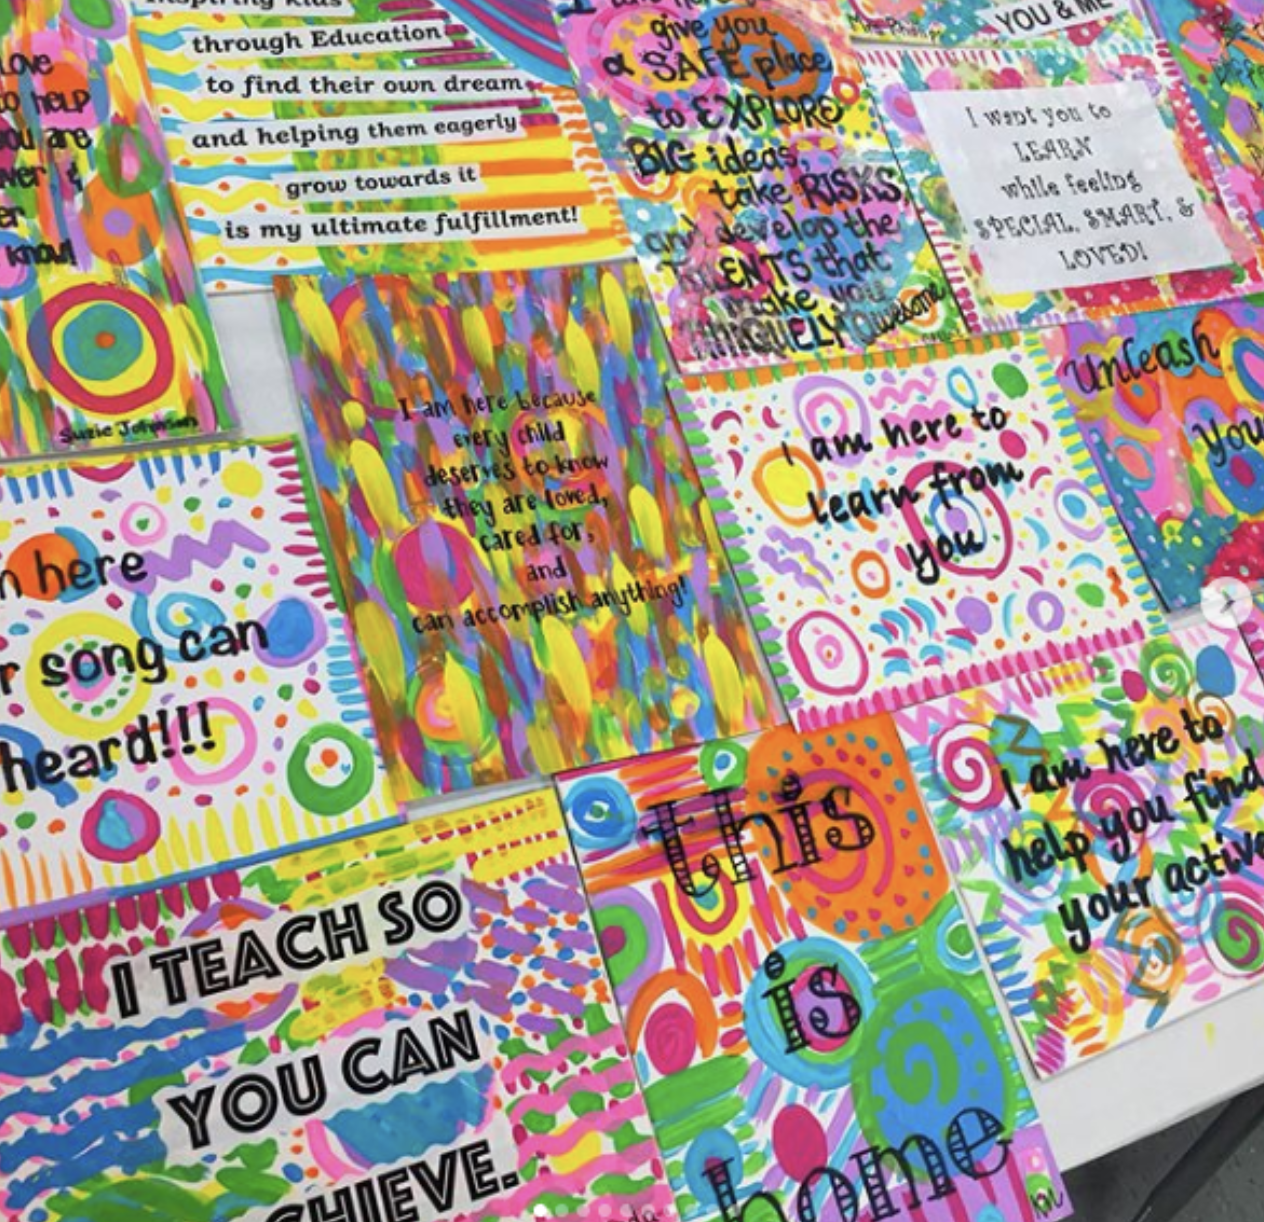 Love
to help
you are
er
know!
Suzie Johnson
Inspiring kids
through Education
to find their own dream
and helping them eagerly
grow towards it
is my ultimate fulfillment!
give you
a SAFE place
to EXPLORE
BIG ideas,
take RISKS,
and develop the
TALENTS that
make you
UNIQUELY Awesome
YOU & ME
I want you to
LEARN
while feeling
SPECIAL, SMART, &
LOVED!
I am here because
every child
deserves to know
they are loved,
cared for,
and
can accomplish anything!
I am here to
learn from
you
Unleash
you
here
r song can
heard!!!
I TEACH SO
YOU CAN
CHIEVE.
this
is
home
I am here to
help you find
your active